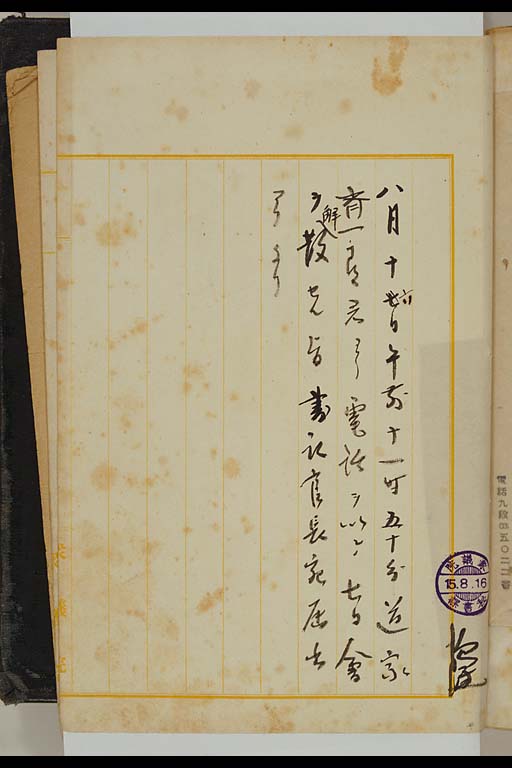 八月十六日午前十一時五十分道家
斉一郎君ヨリ電話ヲ以テ当会
ヲ解散セル旨書記官長宛届出
アリタリ
15.8.16
電話九段四五〇二二番